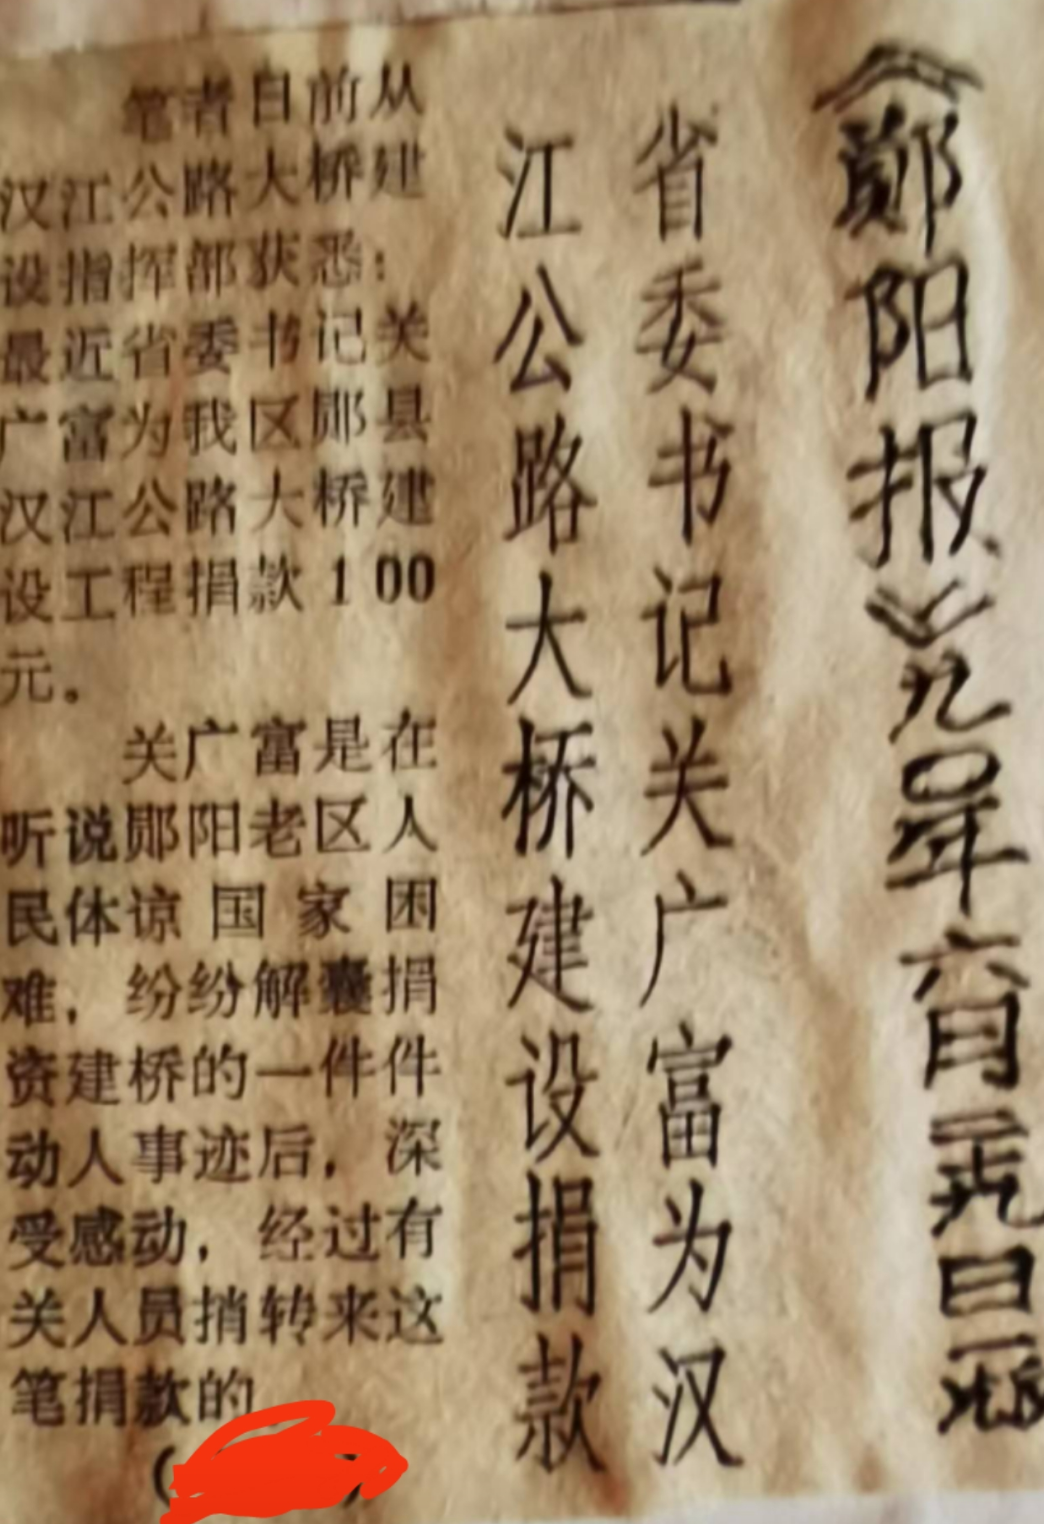 《郧阳报》九〇年六月二十九日一版
省委书记关广富为汉
江公路大桥建设捐款
笔者日前从
汉江公路大桥建
设指挥部获悉：
最近省委书记关
广富为我区郧县
汉江公路大桥建
设工程捐款100
元。
关广富是在
听说郧阳老区人
民体谅国家困
难，纷纷解囊捐
资建桥的一件件
动人事迹后，深
受感动，经过有
关人员捎转来这
笔捐款的